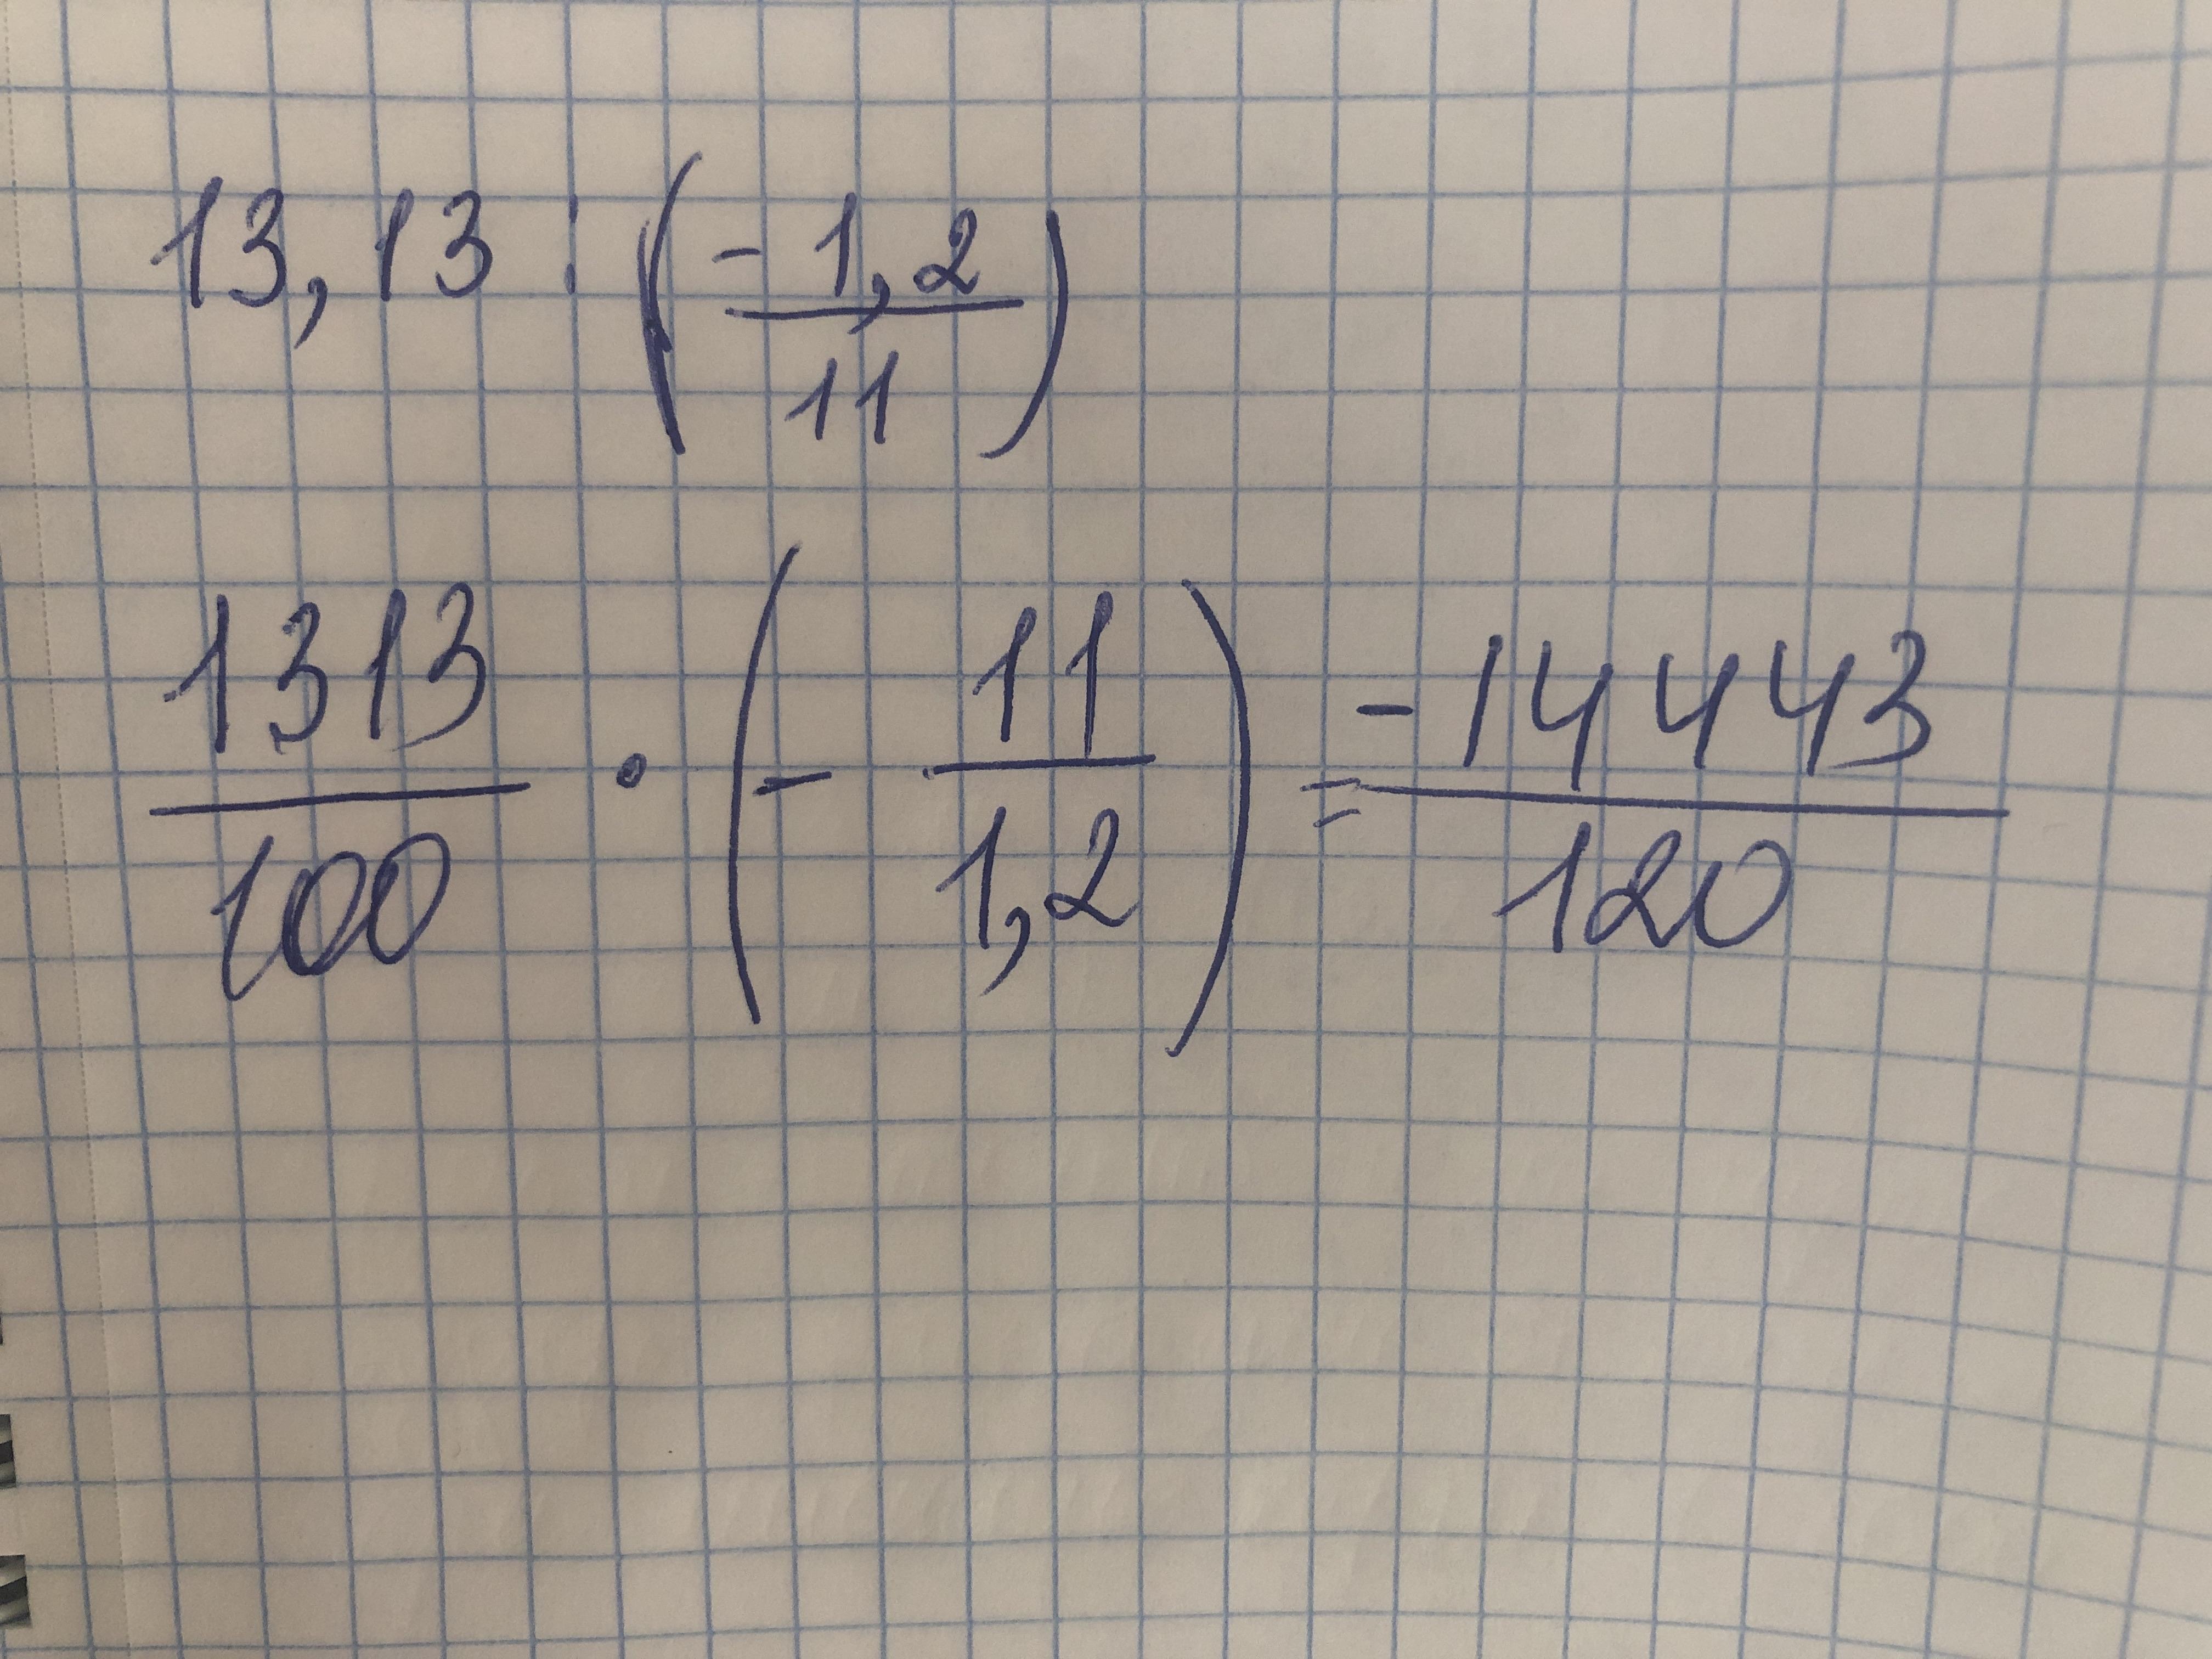 13,13 : (-1,2/11)
1313/100 · (- 11/1,2) = -14443/120